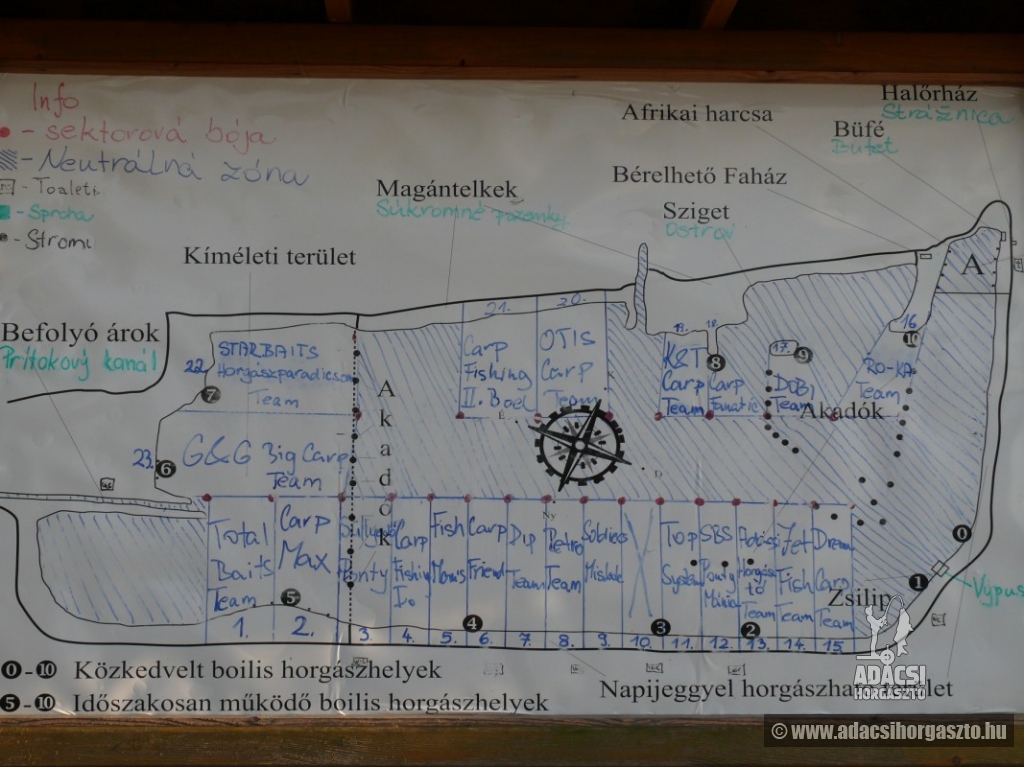 Info
- sektorová bója
- Neutrálná zóna
- Toaleti
- Sprcha
- Stromi
Kíméleti terület
Befolyó árok
Prítokový kanál
Magántelkek
Súkromné pozemky
Afrikai harcsa
Bérelhető Faház
Sziget
Ostrov
Halőrház
Strážnica
Büfé
Bufet
A
21.
20.
19.
18.
17.
16
22.
STARBAITS
Horgászparadicsom
Team
7
Carp
Fishing
II. Boel
OTIS
Carp
Team
K&T
Carp
Team
8
Carp
Fanatic
9
DOBI
Team
10
RO-KA
Team
Akadók
Akadók
23.
6
G&G Big Carp
Team
É
D
Ny
Total
Baits
Team
Carp
Max
Ponty
Carp
Fishing
Fish
Carp
Friend
Dip
Team
Petro
Team
Top
System
SBS
Ponty
Horgász
tó
Team
Jet
Fish
Team
Dream
Carp
Team
0
1
5
4
3
2
Zsilip
Výpus
1. 2. 3. 4. 5. 6. 7. 8. 9. 10. 11. 12. 13. 14. 15.
0 - 10 Közkedvelt boilis horgászhelyek
5 - 10 Időszakosan működő boilis horgászhelyek
Napijeggyel
ADÁCSI
HORGÁSZTÓ
© www.adacsihorgaszto.hu